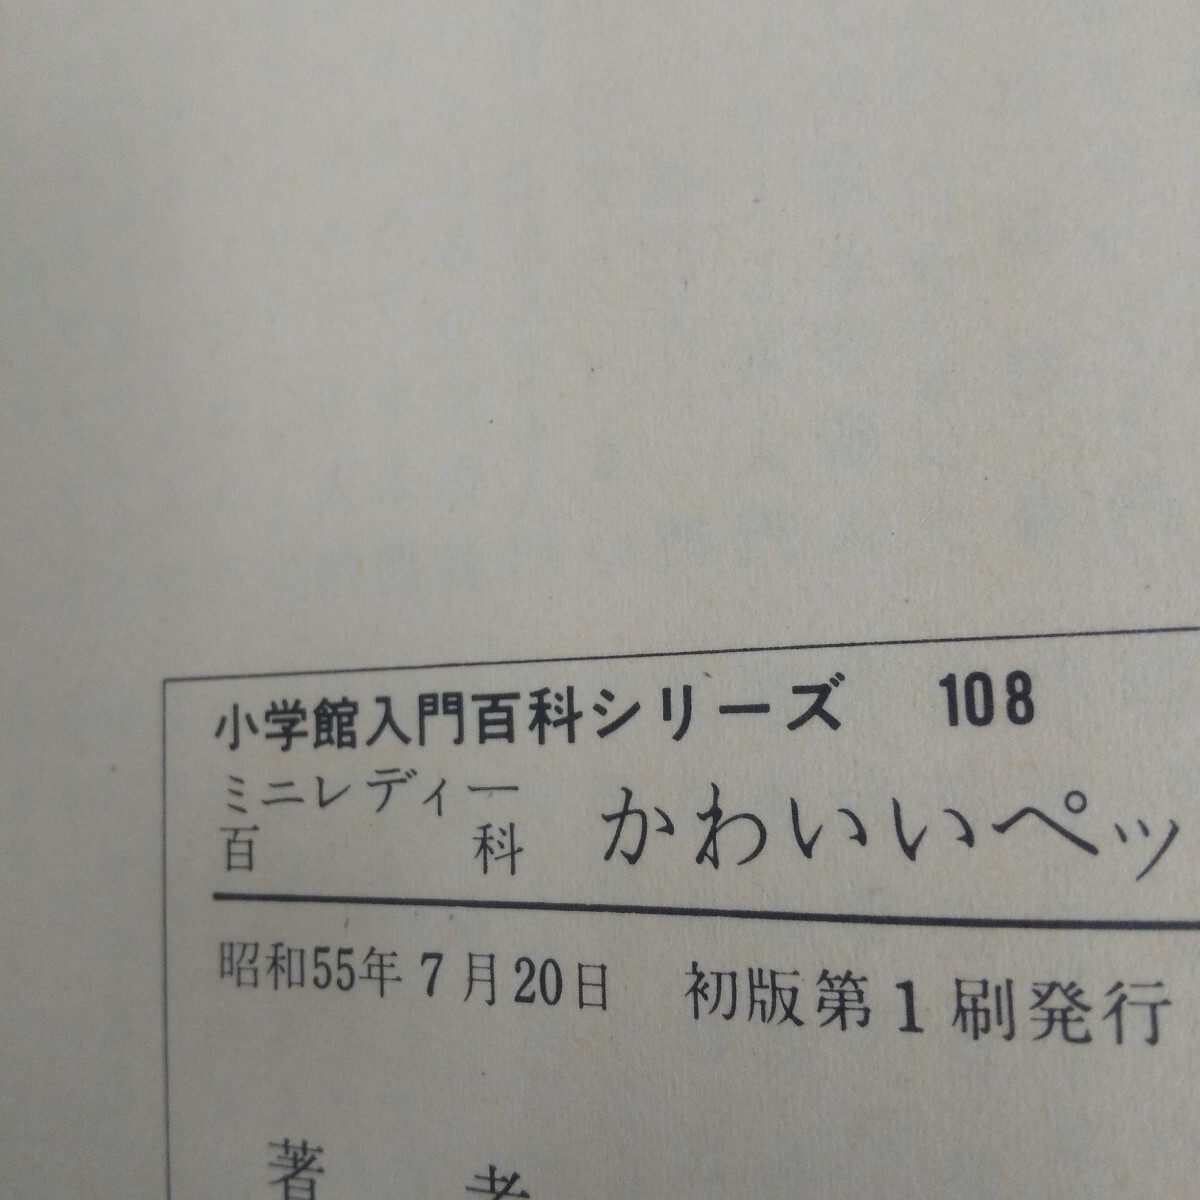 小学館入門百科シリーズ 108
ミニレディー百科 かわいいペッ
昭和55年7月20日 初版第1刷発行
著者